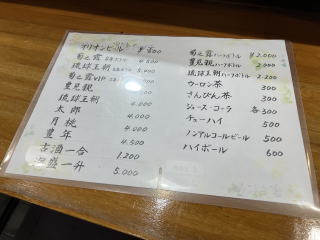 オリオンビール ￥500
菊之露
琉球王朝
菊之露VIP
豊見親 4.000
琉球王朝 4.000
太郎 4.000
月桃 4.000
豊年 4.000
古酒一合 1.200
泡盛一升 5.000
菊之露ハーフボトル ￥2.000
豊見親ハーフボトル 2.000
琉球王朝ハーフボトル 2.200
ウーロン茶 300
さんぴん茶 300
ジュース・コーラ 各300
チューハイ 500
ノンアルコールビール 500
ハイボール 600